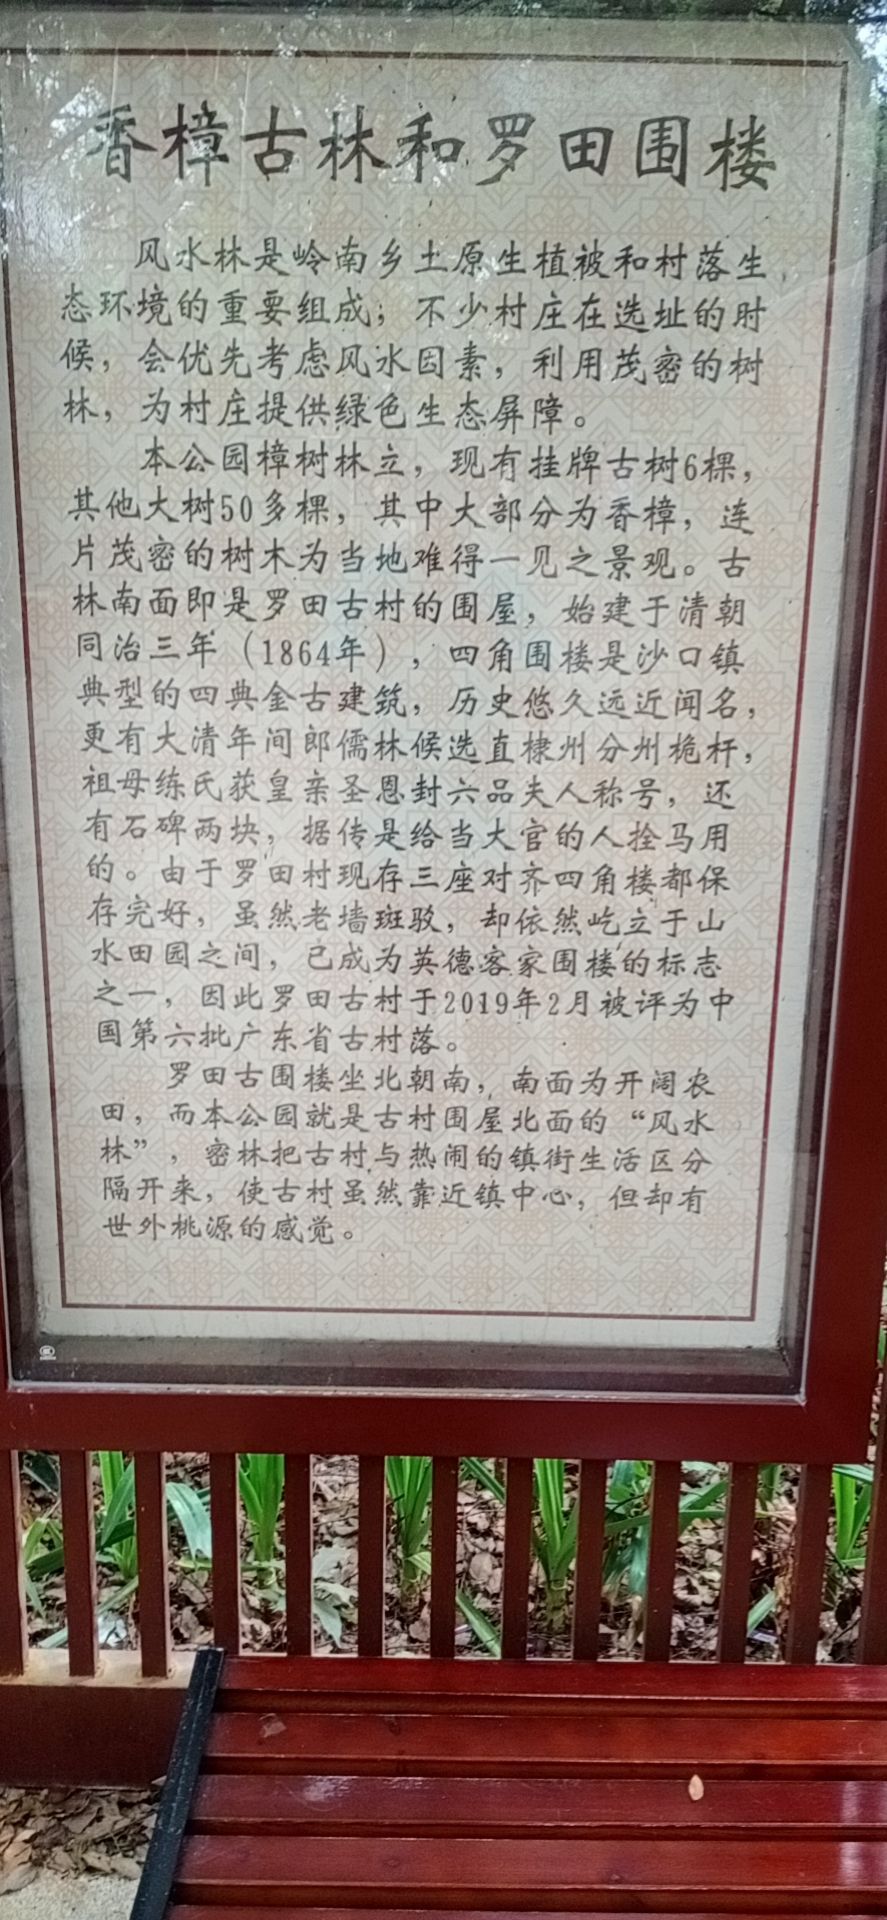 香樟古林和罗田围楼
风水林是岭南乡土原生植被和村落生
态环境的重要组成；不少村庄在选址的时
候，会优先考虑风水因素，利用茂密的树
林，为村庄提供绿色生态屏障。
本公园樟树林立，现有挂牌古树6棵，
其他大树50多棵，其中大部分为香樟，连
片茂密的树木为当地难得一见之景观。古
林南面即是罗田古村的围屋，始建于清朝
同治三年（1864年），四角围楼是沙口镇
典型的四典金古建筑，历史悠久远近闻名，
更有大清年间郎儒林候选直棣州分州桅杆，
祖母练氏获皇亲圣恩封六品夫人称号，还
有石碑两块，据传是给当大官的人拴马用
的。由于罗田村现存三座对齐四角楼都保
存完好，虽然老墙斑驳，却依然屹立于山
水田园之间，已成为英德客家围楼的标志
之一，因此罗田古村于2019年2月被评为中
国第六批广东省古村落。
罗田古围楼坐北朝南，南面为开阔农
田，而本公园就是古村围屋北面的“风水
林”，密林把古村与热闹的镇街生活区分
隔开来，使古村虽然靠近镇中心，但却有
世外桃源的感觉。